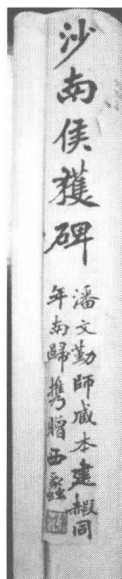 沙南侯獲碑
潘文勤師咸本建赧同
年南歸攜贈西蠡